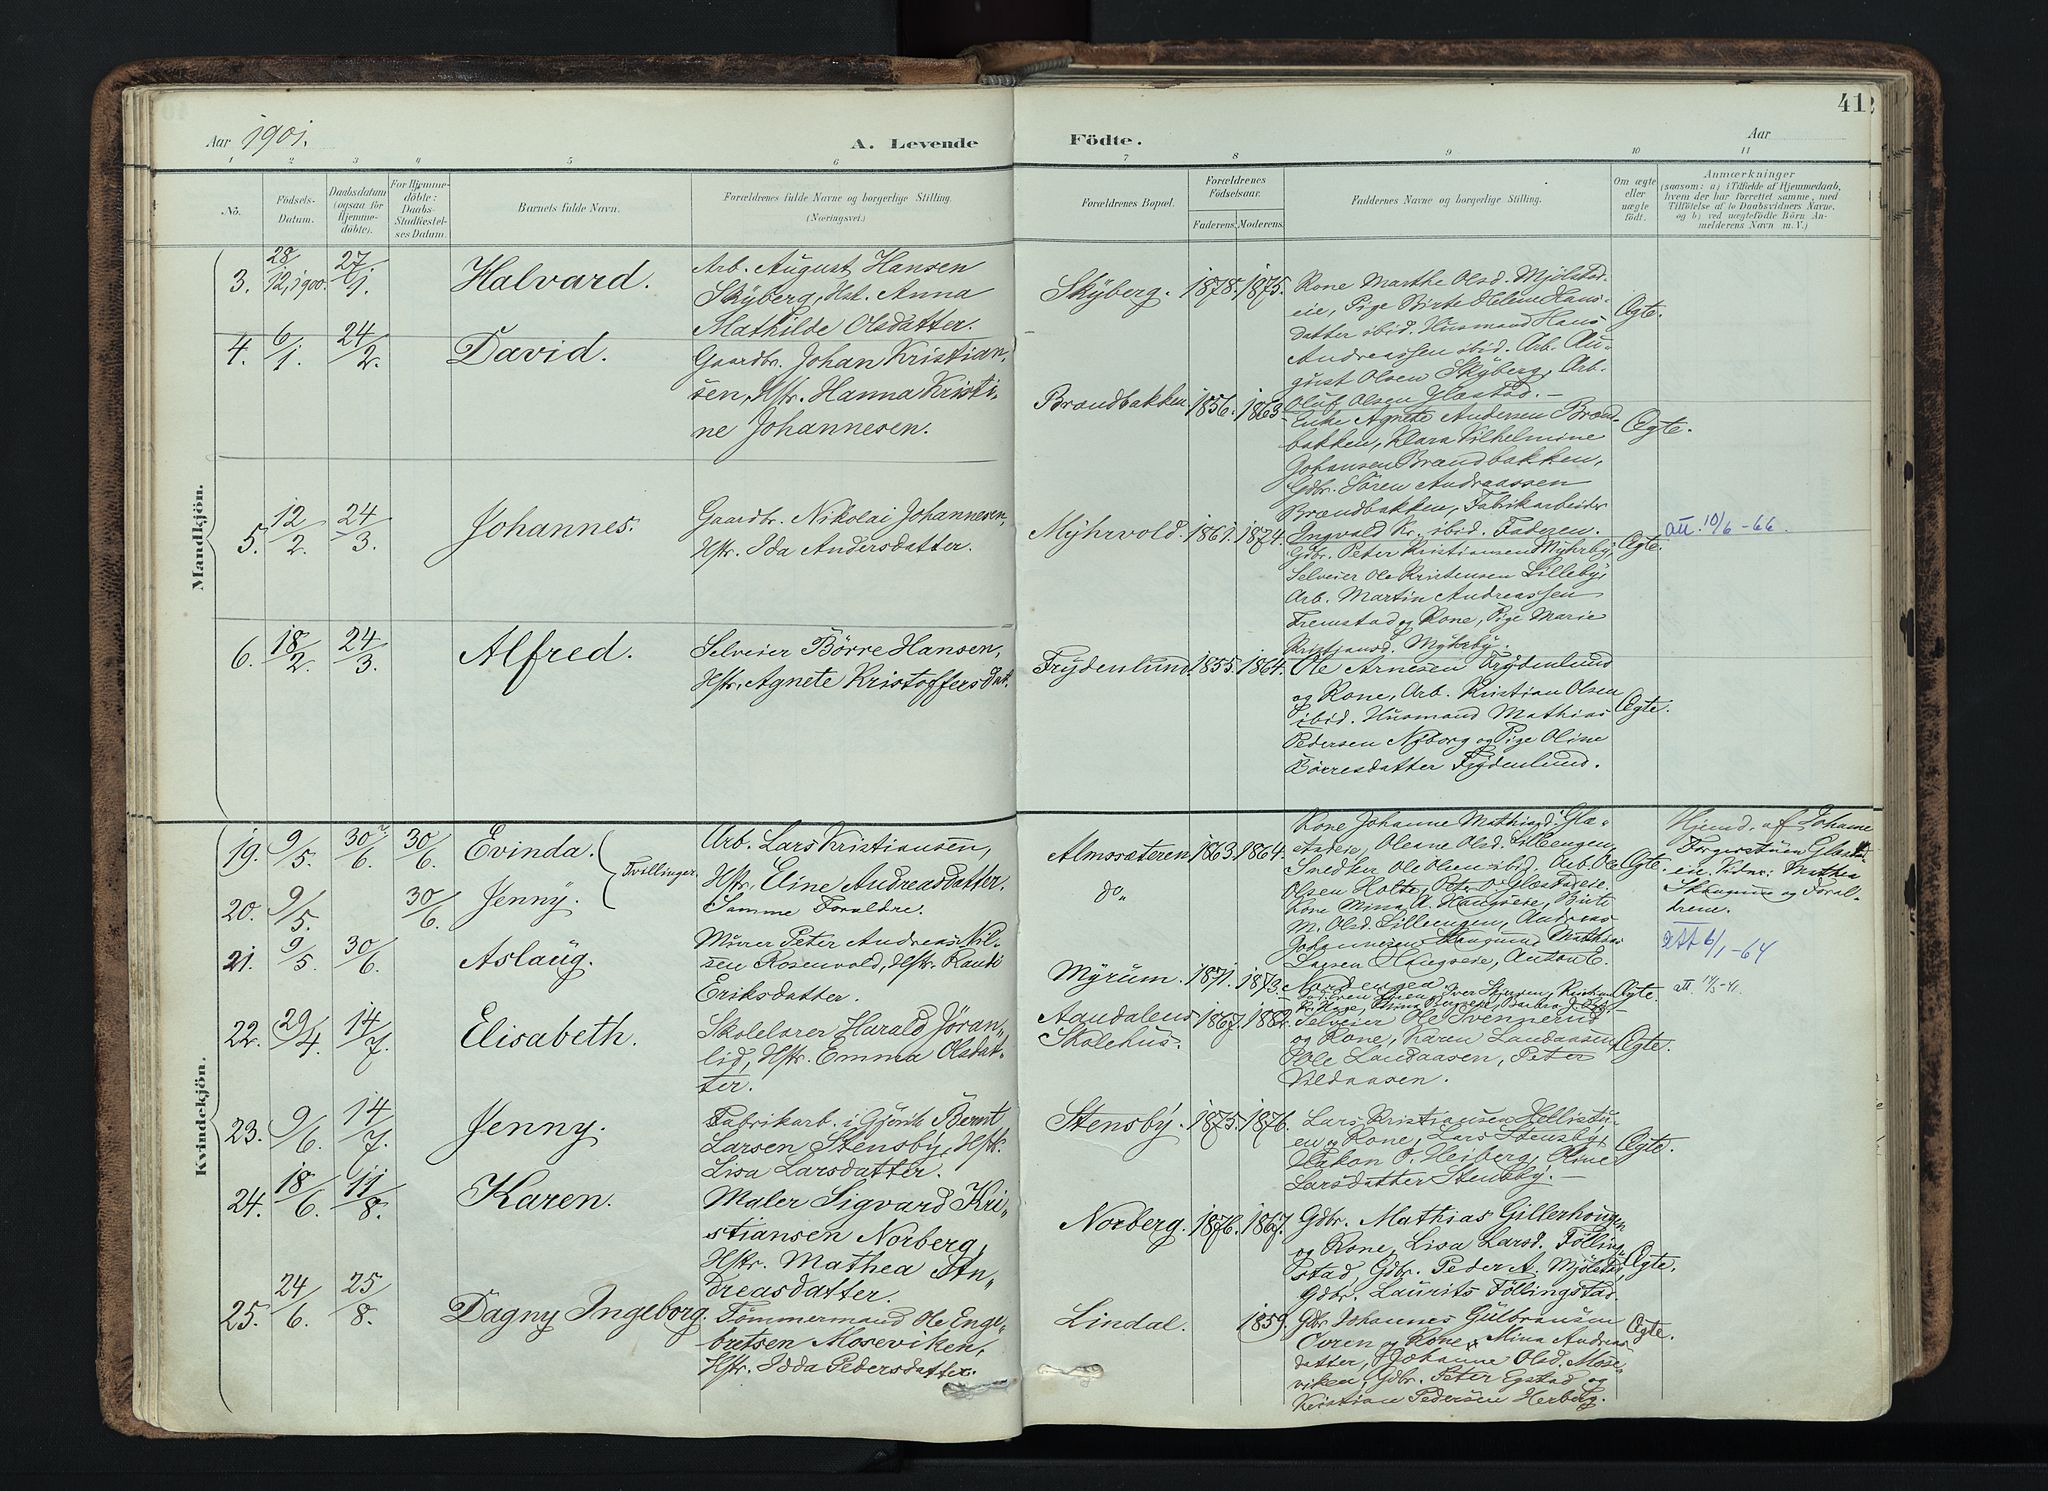 41
Aar 1901.
A. Levende Födte.
Aar
1 2 3 4 5 6 7 8 9 10 11
No.
Födsels-Datum.
Daabsdatum (ogsaa for Hjemmedöbte).
For Hjemmedöbte: Daabs-Stadfæstelses Datum.
Barnets fulde Navn.
Forældrenes fulde Navne og borgerlige Stilling. (Næringsvei.)
Forældrenes Bopæl.
Forældrenes Födselsaar.
Faderens. Moderens.
Faddernes Navne og borgerlige Stilling.
Om ægte eller uægte födt.
Anmærkninger
(saasom: a) i Tilfælde af Hjemmedaab, hvem der har forrettet samme, med Tilföielse af to Daabsvidners Navne. og b) ved uægtefödte Börn Anmelderens Navn m. V.)
Mandkjön.
3. 28/12, 1900. 27/1. Halvard.
Arb. August Hansen
Skÿberg, Hst. Anna
Mathilde Olsdatter.
Skÿberg. 1878. 1875.
Kone Marthe Olsd. Mjölstad-
eie, Pige Birte Helene Hans-
datter ibid. Husmand Hans
Andreassen ibid. Arb. Au-
gust Olsen Skÿberg, Arb.
Oluf Olsen Glæstad.-
Ægte.
4. 6/1. 24/2. David.
Gaardbr. Johan Kristian-
sen, Hstr. Hanna Kristi-
ne Johannesen.
Brændbakken. 1856. 1863.
Enke Agnete Andersen Brænd-
bakken, Klara Vilhelmine
Johansen Brændbakken,
Gdbr. Sören Andreassen
Brændbakken, Fabrikarbeider
Ingvald Kr. ibid. Faderen.
Ægte.
5. 12/2. 24/3. Johannes.
Gaardbr. Nikolai Johannesen,
Hstr. Ida Andersdatter.
Mÿhrvold. 1861. 1874.
Gdbr. Peter Kristiansen Mÿhrbÿ,
Selveier Ole Kristensen Lillebÿ,
Arb. Martin Andreassen
Fremstad og Kone, Pige Marie
Kristiansd. Mÿhrbÿ.
Ægte.
att. 10/6-66.
6. 18/2. 24/3. Alfred.
Selveier Börre Hansen,
Hstr. Agnete Kristoffersdat.
Frÿdenlund. 1855. 1864.
Ole Arnesen Frÿdenlund
og Kone, Arb. Kristian Olsen
ibid. Husmand Mathias
Pedersen Nÿborg og Pige Oline
Börresdatter Frÿdenlund.
Ægte.
Kvindekjön.
19. 9/5. 30/6. 30/6. Evinda. Tvillinger.
Arb. Lars Kristiansen,
Hstr. Eline Andreasdatter.
Almosæteren 1863. 1864.
Kone Johanne Mathiasd. Glæ-
stadeie, Oleane Olsd. Lillengen,
Smed ker Ole Olsen ibid. Arb. Ole
Olsen Holte, Peter O. Glæstadeie.
Ægte.
Hjemd. af Johanne
Glæstad-
eie. Vidner: Mathea
og Foræl-
drene.
20. 9/5. 30/6. Jennÿ.
Samme Foraldre.
do.
Kone Mina A. Haugseie, Birte
M. Olsd. Lillengen, Andreas
Johannesen Mathias
Larsen Haugseie, Anton C.
Nordengen.
21. 9/5. 30/6. Aslaüg.
Mürer Peter Andreas Nil-
sen Rosenvold, Hstr. Randi
Eriksdatter.
Mÿrüm. 1871. 1873.
Ægte.
att 6/1-64
att. 14/5-41.
22. 29/4. 14/7. Elisabeth.
Skolelærer Harald Jöran-
lid, Hstr. Emma Olsdat-
ter.
Aaudalens
Skolehus. 1867. 1882.
Selveier Ole Svennerud
og Kone, Karen Landaasen
Ole Landaasen, Peter
Vildaasen.
Ægte.
23. 9/6. 14/7. Jennÿ.
Fabrikarb. i Gjövik Bernt
Larsen Stensbÿ, Hstr.
Lisa Larsdatter.
Stensbÿ. 1875. 1876.
Lars Kristiansen Hellistu-
en og Kone, Lars Stensbÿ,
Hakon O. Heiberg, Oline
Larsdatter Stensbÿ.-
Ægte.
24. 18/6. 11/8. Karen.
Maler Sigvard Kri-
stiansen Norberg,
Hstr. Mathea An-
dreasdatter.
Norberg. 1876. 1867.
Gdbr. Mathias Gillerhaugen
og Kone, Lisa Larsd. Fölling-
stad, Gdbr. Peder A. Mjölstad,
Gdbr. Laurits Föllingstad.
Ægte.
25. 24/6. 25/8. Dagny Ingeborg.
Tömmermand Ole Enge-
bretsen Moseviken,
Hstr. Idda Pedersdatter.
Lindal. 1859.
Gdbr. Johannes Gulbransen
Evren og Kone, Mina Andreas-
datter, Johanne Olsd. Mose-
viken, Gdbr. Peter Egstad og
Kristian Pedersen Herberg.
Ægte.